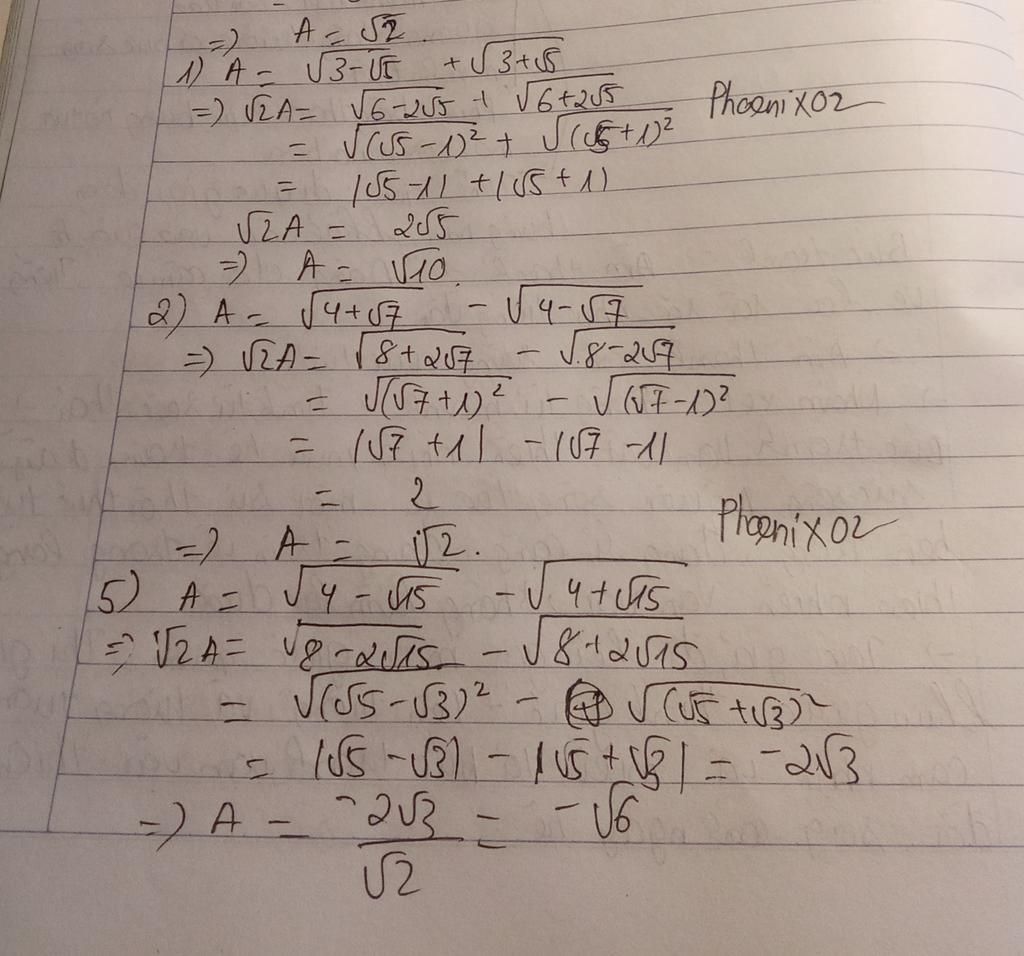 => A = √2.
1) A = √(3-√5) + √(3+√5)
=> √2A = √(6-2√5) + √(6+2√5) Phoenix02
= √((√5-1)²) + √((√5+1)²)
= |√5-1| + |√5+1|
√2A = 2√5
=> A = √10.
2) A = √(4+√7) - √(4-√7)
=> √2A = √(8+2√7) - √(8-2√7)
= √((√7+1)²) - √((√7-1)²)
= |√7+1| - |√7-1|
= 2
=> A = √2. Phoenix02
5) A = √(4-√15) - √(4+√15)
=> √2A = √(8-2√15) - √(8+2√15)
= √((√5-√3)²) - √((√5+√3)²)
= |√5-√3| - |√5+√3| = -2√3
=> A = -2√3/√2 = -√6